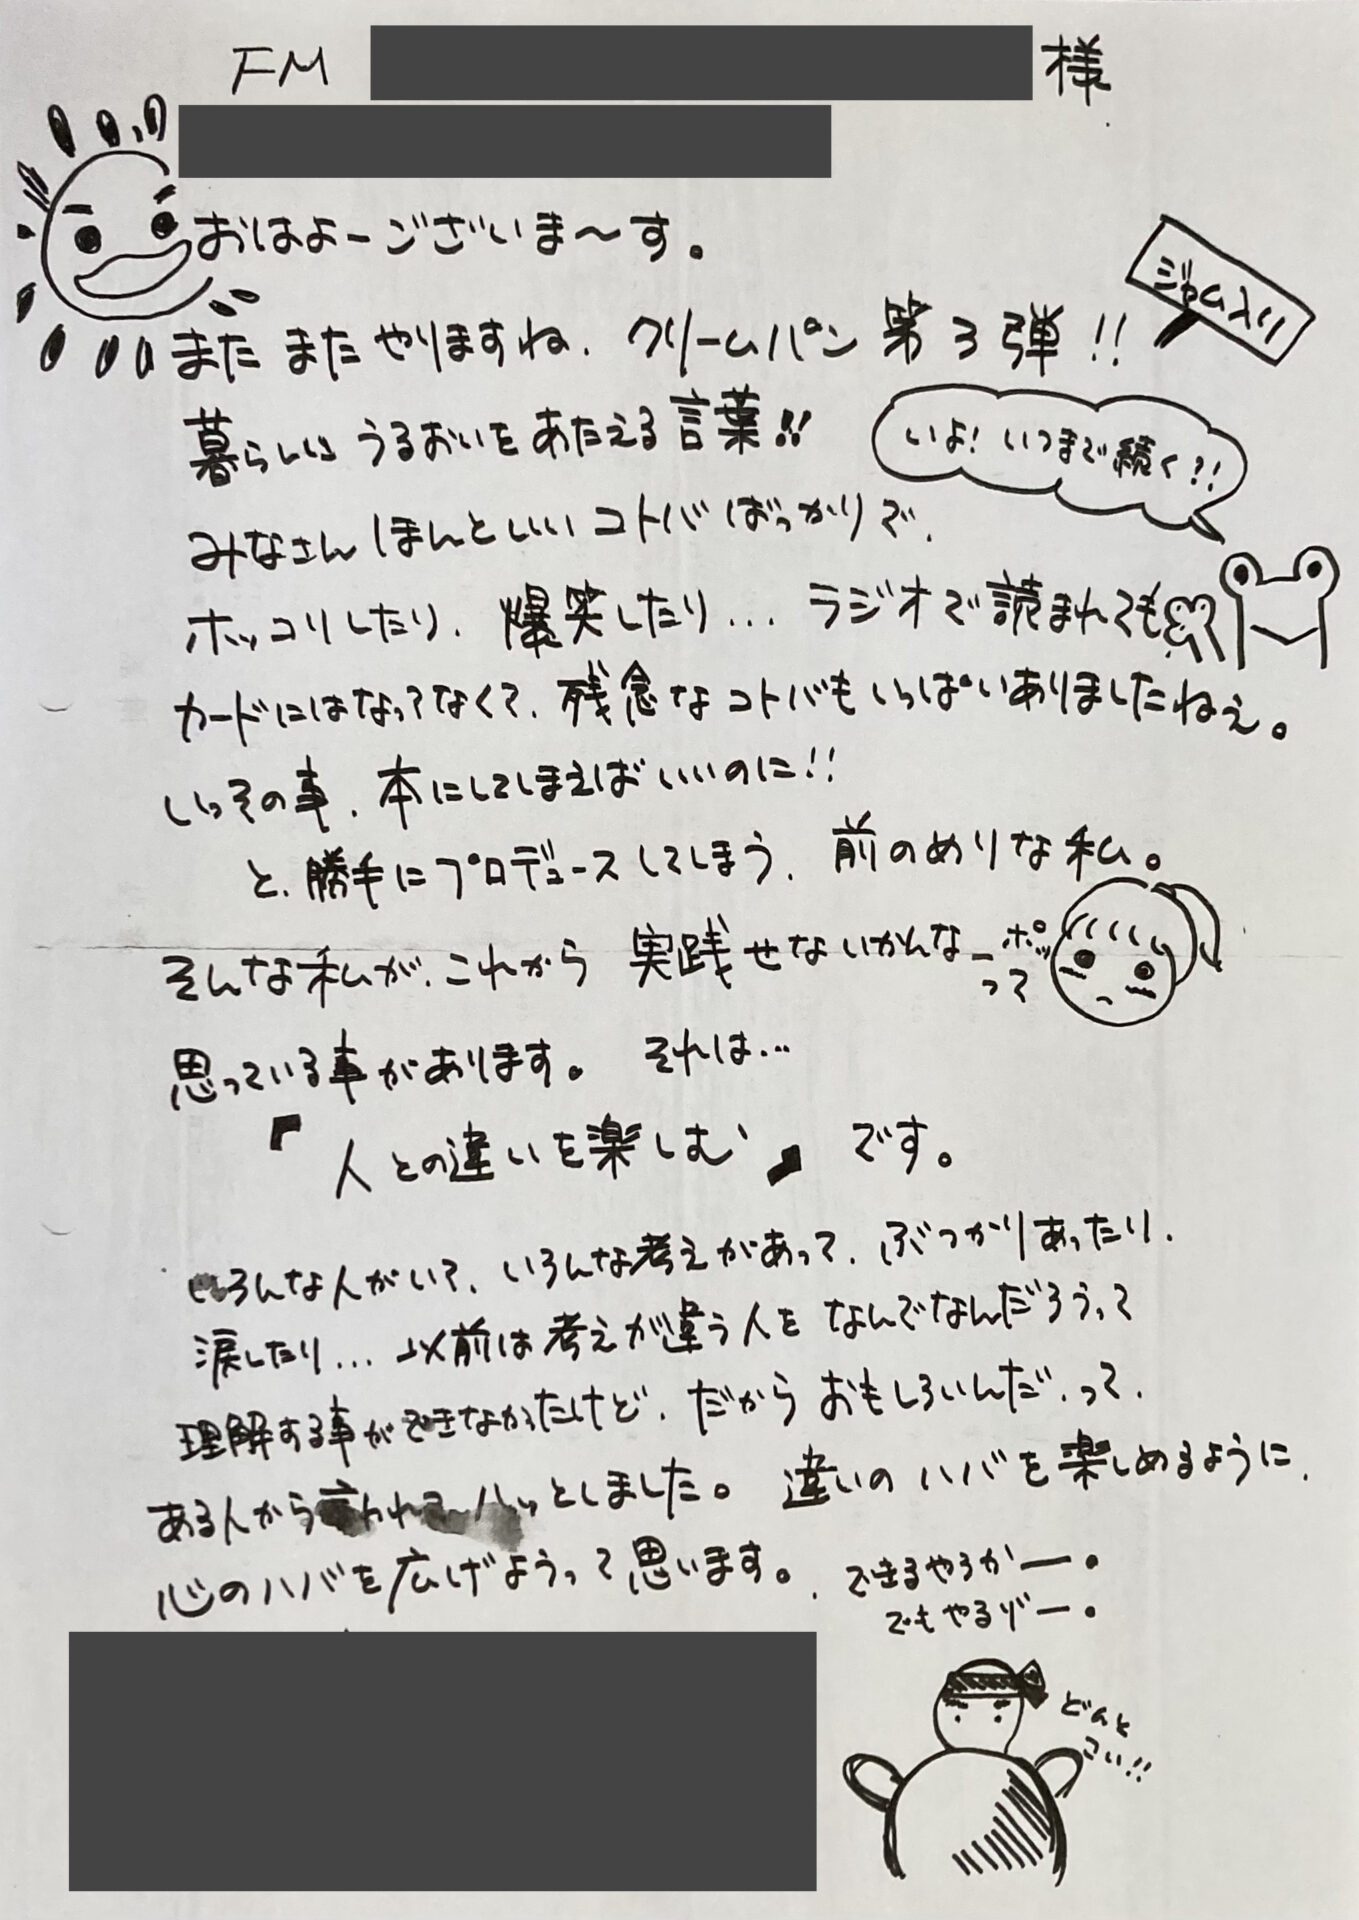 FM 様
おはよーございま〜す。
ジャム入り
またまたやりますね、クリームパン第3弾!!
暮らしにうるおいをあたえる言葉!!
いよ!いつまで続く?!
みなさんほんといいコトバばっかりで、
ホッコリしたり、爆笑したり... ラジオで読まれても
カードにはなってなくて、残念なコトバもいっぱいありましたねぇ。
いっその事、本にしてしまえばいいのに!!
と、勝手にプロデュースしてしまう、前のめりな私。
そんな私が、これから実践せないかんなーって
ポッ
思っている事があります。 それは...
『人との違いを楽しむ』です。
いろんな人がいて、いろんな考えがあって、ぶつかりあったり、
涙したり... 以前は考えが違う人をなんでなんだろうって
理解する事ができなかたけど、だからおもしろいんだ、って、
ある人から言われてハッとしました。違いのハバを楽しめるように、
心のハバを広げようって思います。
できるやろかー。
でもやるゾー。
どんと
こい!!